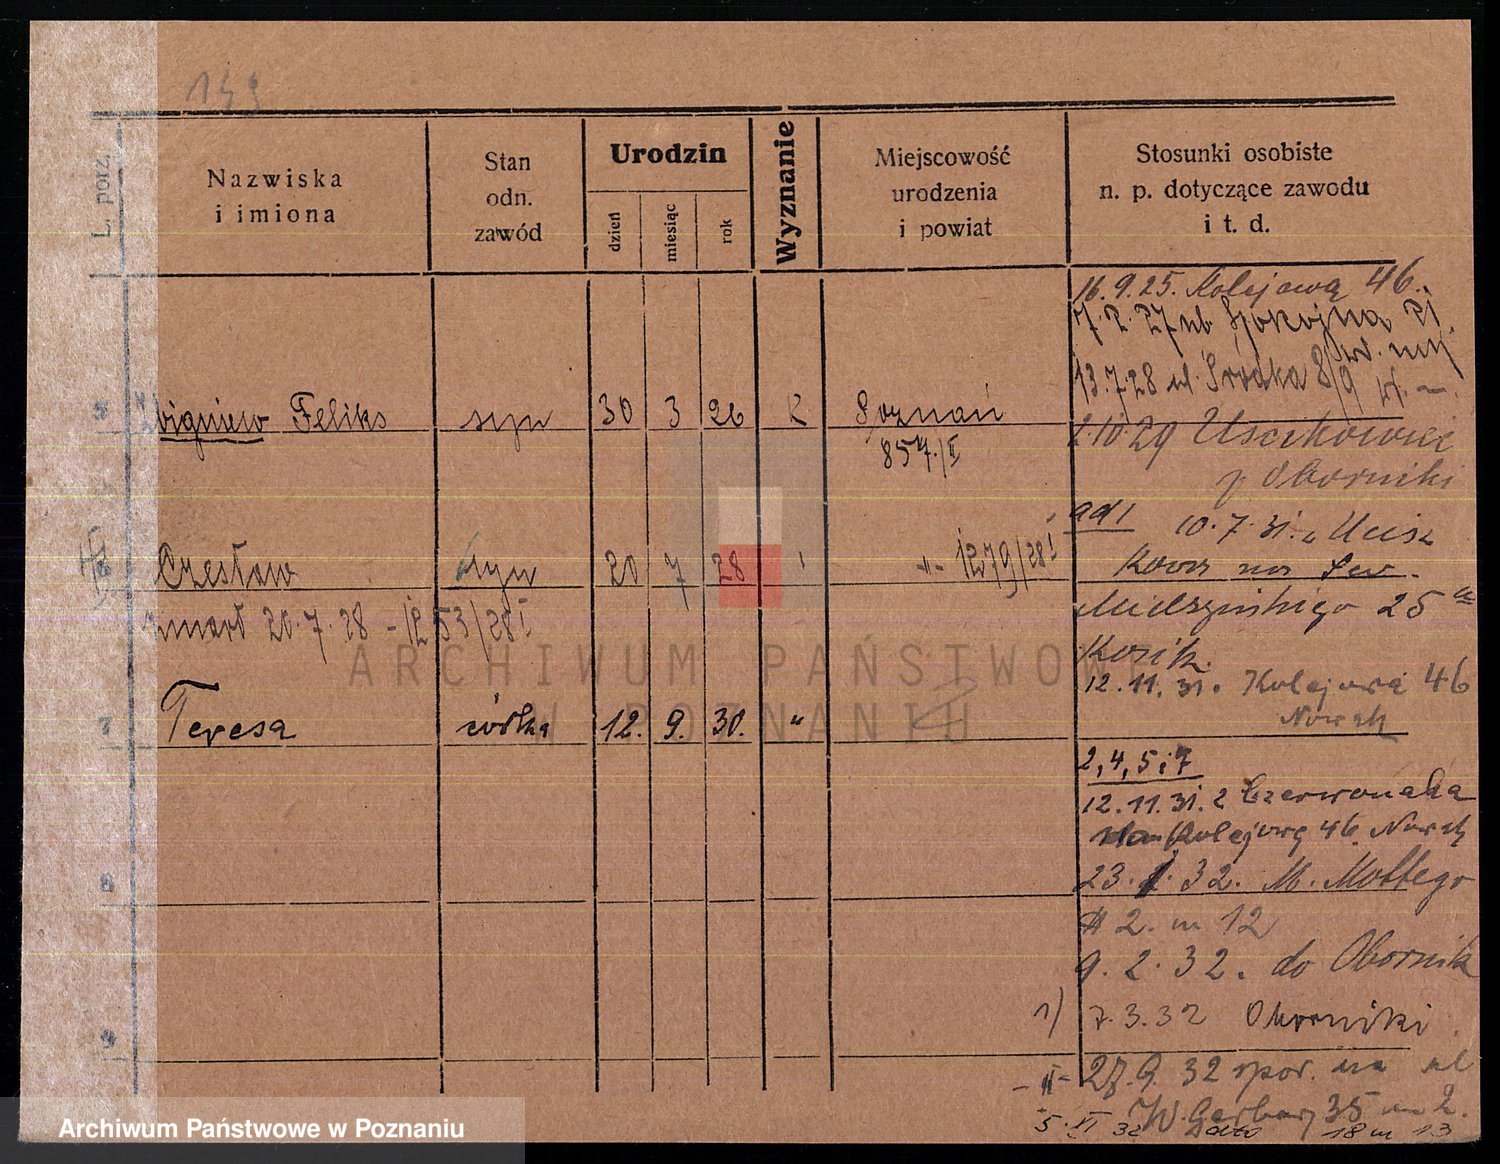 149
L. porz.
Nazwiska
i imiona
Stan
odn.
zawód
Urodzin
dzień
miesiąc
rok
Wyznanie
Miejscowość
urodzenia
i powiat
Stosunki osobiste
n. p. dotyczące zawodu
i t. d.
16.9.25. Kolejową 46.
7.2.27 ul Spokojna 21.
13.7.28 ul. Srodka 8/9
5 Zbigniew Feliks syn 30 3 26 K Poznań
857/II
2.10.29 Uscikowiec
p Oborniki
ad 1 10.7.31.
6 Czesław syn 20 7 28 -"- 1279/28 I
zmarł 20.7.28 - 1253/28 I
Mielżyńskiego 25
12.11.31. Kolejowa 46
Nowak
7 Teresa córka 12. 9. 30. "
2, 4, 5 i 7
12.11.31. z Czerwonaka
Kolejowa 46. Nowak
8
23. 1. 32. M. Mottego
2. m 12
9. 2. 32. do Obornik
1) 7.3.32 Oborniki.
9
-"- 27.9.32 spow. na ul
W. Garbary 35 m 2.
5. XI 32 dto 18 m 13
ARCHIWUM PAŃSTWOWE
W POZNANIU
Archiwum Państwowe w Poznaniu